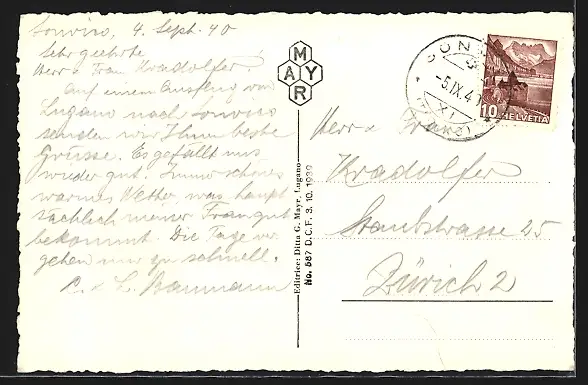 Sonvico, 4. Sept. 40
Sehr geehrte
Herr & Frau Kradolfer
Auf einem Ausflug von
Lugano nach Sonvico
senden wir Ihnen beste
Grüsse. Es gefällt uns
wieder gut. Immer schönes
warmes Wetter, was haupt
sächlich meiner Frau gut
bekommt. Die Tage ver
gehen nur zu schnell.
&  L. Baumann
MAYR
Editrice: Ditta G. Mayr, Lugano
No. 587 D.C.F. 3. 10. 1939
-5.IX.4
10 HELVETIA
Herr &
Kradolfer
Staubstrasse 25
Zürich 2